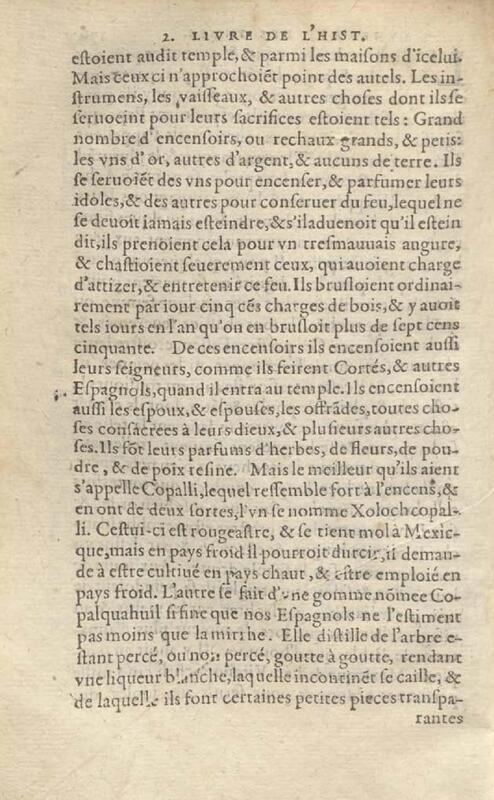 2. LIVRE DE L'HIST.
estoient audit temple, & parmi les maisons d'icelui.
Mais ceux ci n'approchoiẽt point des autels. Les in-
strumens, les vaisseaux, & autres choses dont ils se
seruoeint pour leurs sacrifices estoient tels: Grand
nombre d'encensoirs, ou rechaux grands, & petis:
les vns d'or, autres d'argent, & aucuns de terre. Ils
se seruoiẽt des vns pour encenser, & parfumer leurs
idoles, & des autres pour conseruer du feu, lequel ne
se deuoit iamais esteindre, & s'il aduenoit qu'il estein
dit, ils prenoient cela pour vn tresmauuais augure,
& chastioient seuerement ceux, qui auoient charge
d'attizer, & entretenir ce feu. Ils brusloient ordinai-
rement par iour cinq cẽs charges de bois, & y auoit
tels iours en l'an qu'on en brusloit plus de sept cens
cinquante. De ces encensoirs ils encensoient aussi
leurs seigneurs, comme ils feirent Cortés, & autres
Espagnols, quand il entra au temple. Ils encensoient
aussi les espoux, & espouses, les offrãdes, toutes cho-
ses consacrées à leurs dieux, & plusieurs autres cho-
ses. Ils fõt leurs parfums d'herbes, de fleurs, de pou-
dre, & de poix resine. Mais le meilleur qu'ils aient
s'appelle Copalli, lequel ressemble fort à l'encens, &
en ont de deux sortes, l'vn se nomme Xolochcopal-
li. Cestui-ci est rougeastre, & se tient mol à Mexic-
que, mais en pays froid il pourroit durcir, il deman-
de à estre cultiué en pays chaut, & estre emploié en
pays froid. L'autre se fait d'vne gomme nõmee Co-
palquahuil si fine que nos Espagnols ne l'estiment
pas moins que la mirrhe. Elle distille de l'arbre e-
stant percé, ou non percé, goutte à goutte, rendant
vne liqueur blanche, laquelle incontinẽt se caille, &
de laquelle ils font certaines petites pieces transpa-
rantes